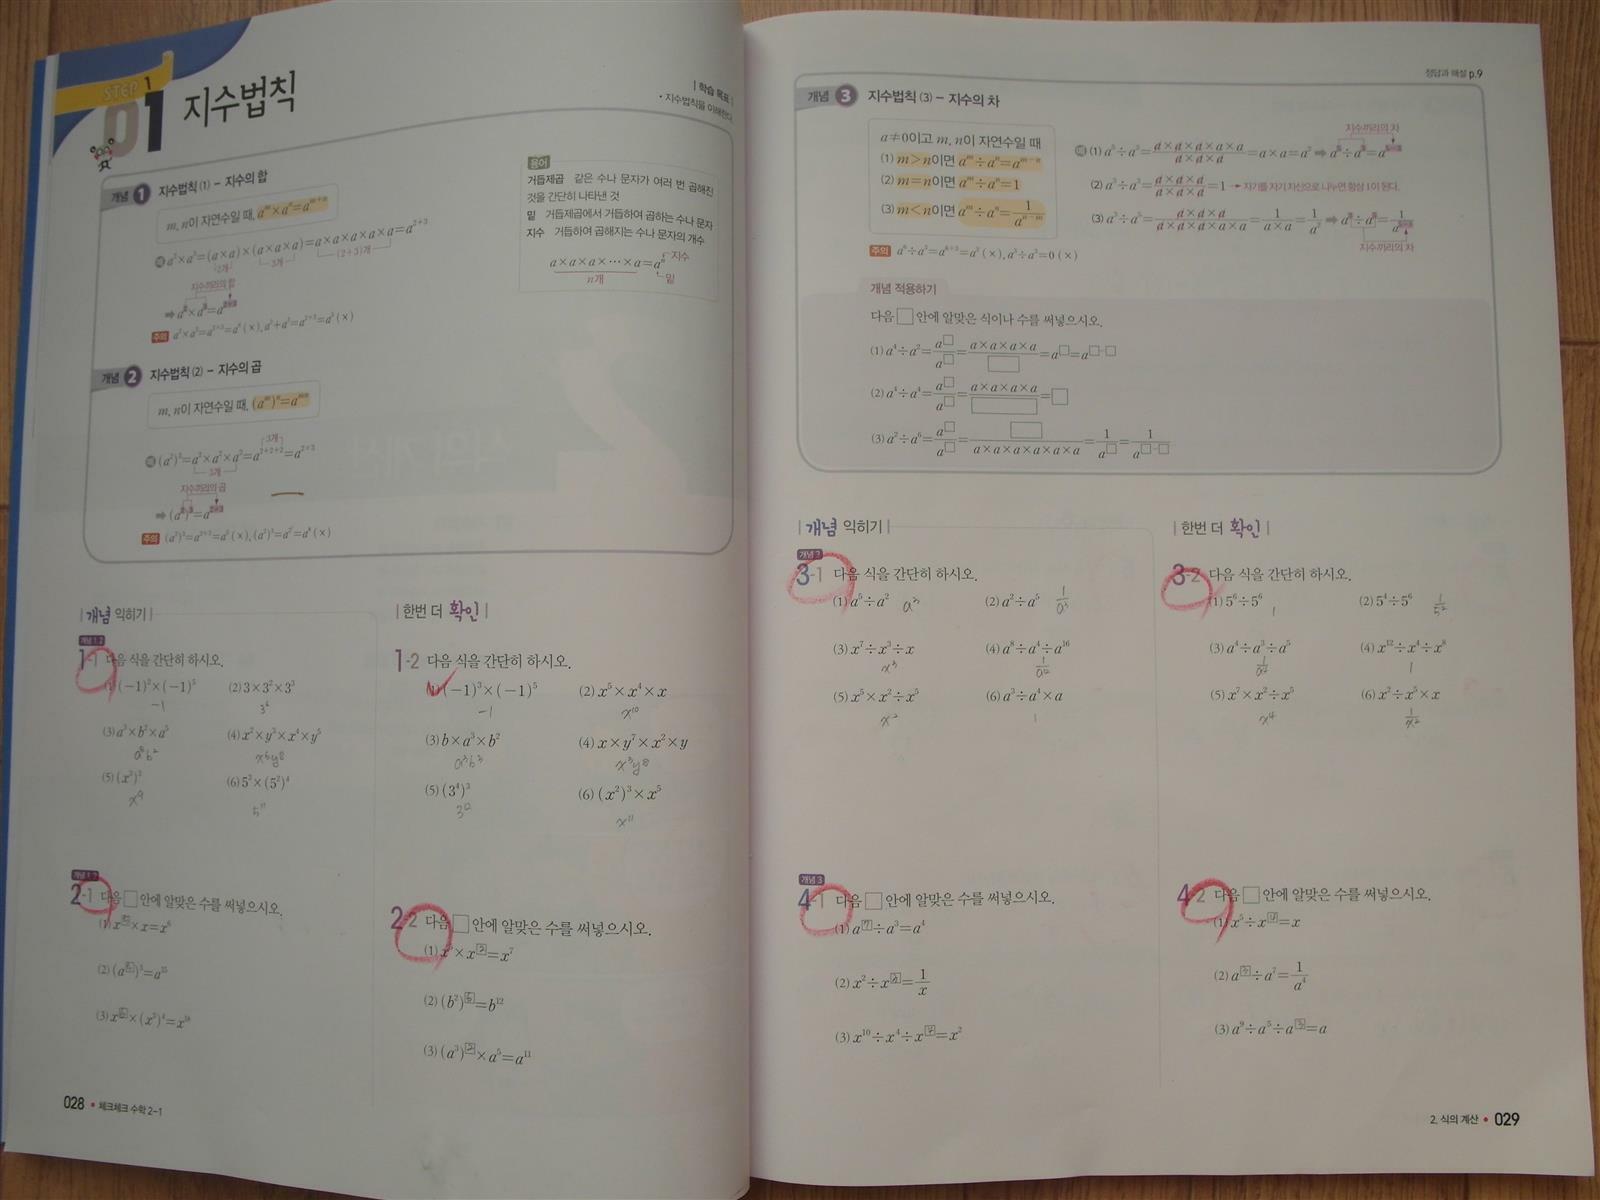 STEP 1
01 지수법칙
| 학습 목표 |
• 지수법칙을 이해한다.
개념 1 지수법칙 (1) - 지수의 합
m, n이 자연수일 때, aᵐ×aⁿ=aᵐ⁺ⁿ
예 a²×a³=(a×a)×(a×a×a)=a×a×a×a×a=a²⁺³
2개 3개 (2+3)개
지수끼리의 합
➡ a²×a³=a²⁺³
용어
거듭제곱 같은 수나 문자가 여러 번 곱해진
것을 간단히 나타낸 것
밑 거듭제곱에서 거듭하여 곱하는 수나 문자
지수 거듭하여 곱해지는 수나 문자의 개수
a×a×a×⋯×a=aⁿ 지수
n개 밑
개념 2 지수법칙 (2) - 지수의 곱
m, n이 자연수일 때, (aᵐ)ⁿ=aᵐⁿ
3개
예 (a²)³=a²×a²×a²=a²⁺²⁺²=a²ˣ³
3개
지수끼리의 곱
➡ (a²)³=a²ˣ³
| 개념 익히기 |
개념 1 2
1-1 다음 식을 간단히 하시오.
(1) (−1)²×(−1)⁵ (2) 3×3²×3³
−1 3⁶
(3) a³×b²×a⁵ (4) x²×y³×x⁴×y⁵
a⁸b² x⁶y⁸
x⁹ 5¹¹
| 한번 더 확인 |
1-2 다음 식을 간단히 하시오.
(1) (−1)³×(−1)⁵ (2) x⁵×x⁴×x
−1 x¹⁰
(3) b×a³×b² (4) x×y⁷×x²×y
a³b³ x³y⁸
(5) (3⁴)³ (6) (x²)³×x⁵
3¹² x¹¹
2-1 다음 □ 안에 알맞은 수를 써넣으시오.
(1) x⁵×x=x⁶
(2) (a⁵)³=a¹⁵
2-2 다음 □ 안에 알맞은 수를 써넣으시오.
(2) (b²)⁶=b¹²
(3) (a³)²×a⁵=a¹¹
028 • 체크체크 수학 2-1
정답과 해설 p.9
개념 3 지수법칙 (3) - 지수의 차
a≠0이고 m, n이 자연수일 때
(1) m>n이면 aᵐ÷aⁿ=aᵐ⁻ⁿ
(2) m=n이면 aᵐ÷aⁿ=1
(3) m<n이면 aᵐ÷aⁿ=1/aⁿ⁻ᵐ
지수끼리의 차
예 (1) a⁵÷a³=a×a×a×a×a/a×a×a=a×a=a² ➡ a⁵÷a³=a⁵⁻³
(2) a³÷a³=a×a×a/a×a×a=1 → 자기를 자기 자신으로 나누면 항상 1이 된다.
(3) a³÷a⁵=a×a×a/a×a×a×a×a=1/a×a=1/a² ➡ a³÷a⁵=1/a⁵⁻³
지수끼리의 차
주의 a⁶÷a³=a⁶÷³=a² (×), a³÷a³=0 (×)
개념 적용하기
다음 □ 안에 알맞은 식이나 수를 써넣으시오.
(1) a⁴÷a²=a□/a□=a×a×a×a/□=a□=a□−□
(2) a⁴÷a⁴=a□/a□=a×a×a×a/□=□
(3) a²÷a⁶=a□/a□=□/a×a×a×a×a×a=1/a□=1/a□−□
| 개념 익히기 |
3-1 다음 식을 간단히 하시오.
(1) a⁵÷a² a³ (2) a²÷a⁵ 1/a³
(3) x⁷÷x³÷x (4) a⁸÷a⁴÷a¹⁶
x³ 1/a¹²
(5) x⁵×x²÷x⁵ (6) a³÷a⁴×a
x² 1
| 한번 더 확인 |
3-2 다음 식을 간단히 하시오.
(1) 5⁶÷5⁶ (2) 5⁴÷5⁶ 1/5²
1
(3) a⁴÷a³÷a⁵ (4) x¹²÷x⁴÷x⁸
1
(5) x⁷×x²÷x⁵ (6) x²÷x⁵×x
x⁴ 1/x²
개념 3
4-1 다음 □ 안에 알맞은 수를 써넣으시오.
(1) a⁷÷a³=a⁴
(2) x²÷x³=1/x
(3) x¹⁰÷x⁴÷x⁴=x²
4-2 다음 □ 안에 알맞은 수를 써넣으시오.
(1) x⁵÷x⁴=x
(2) a³÷a⁷=1/a⁴
(3) a⁹÷a⁵÷a³=a
2. 식의 계산 • 029